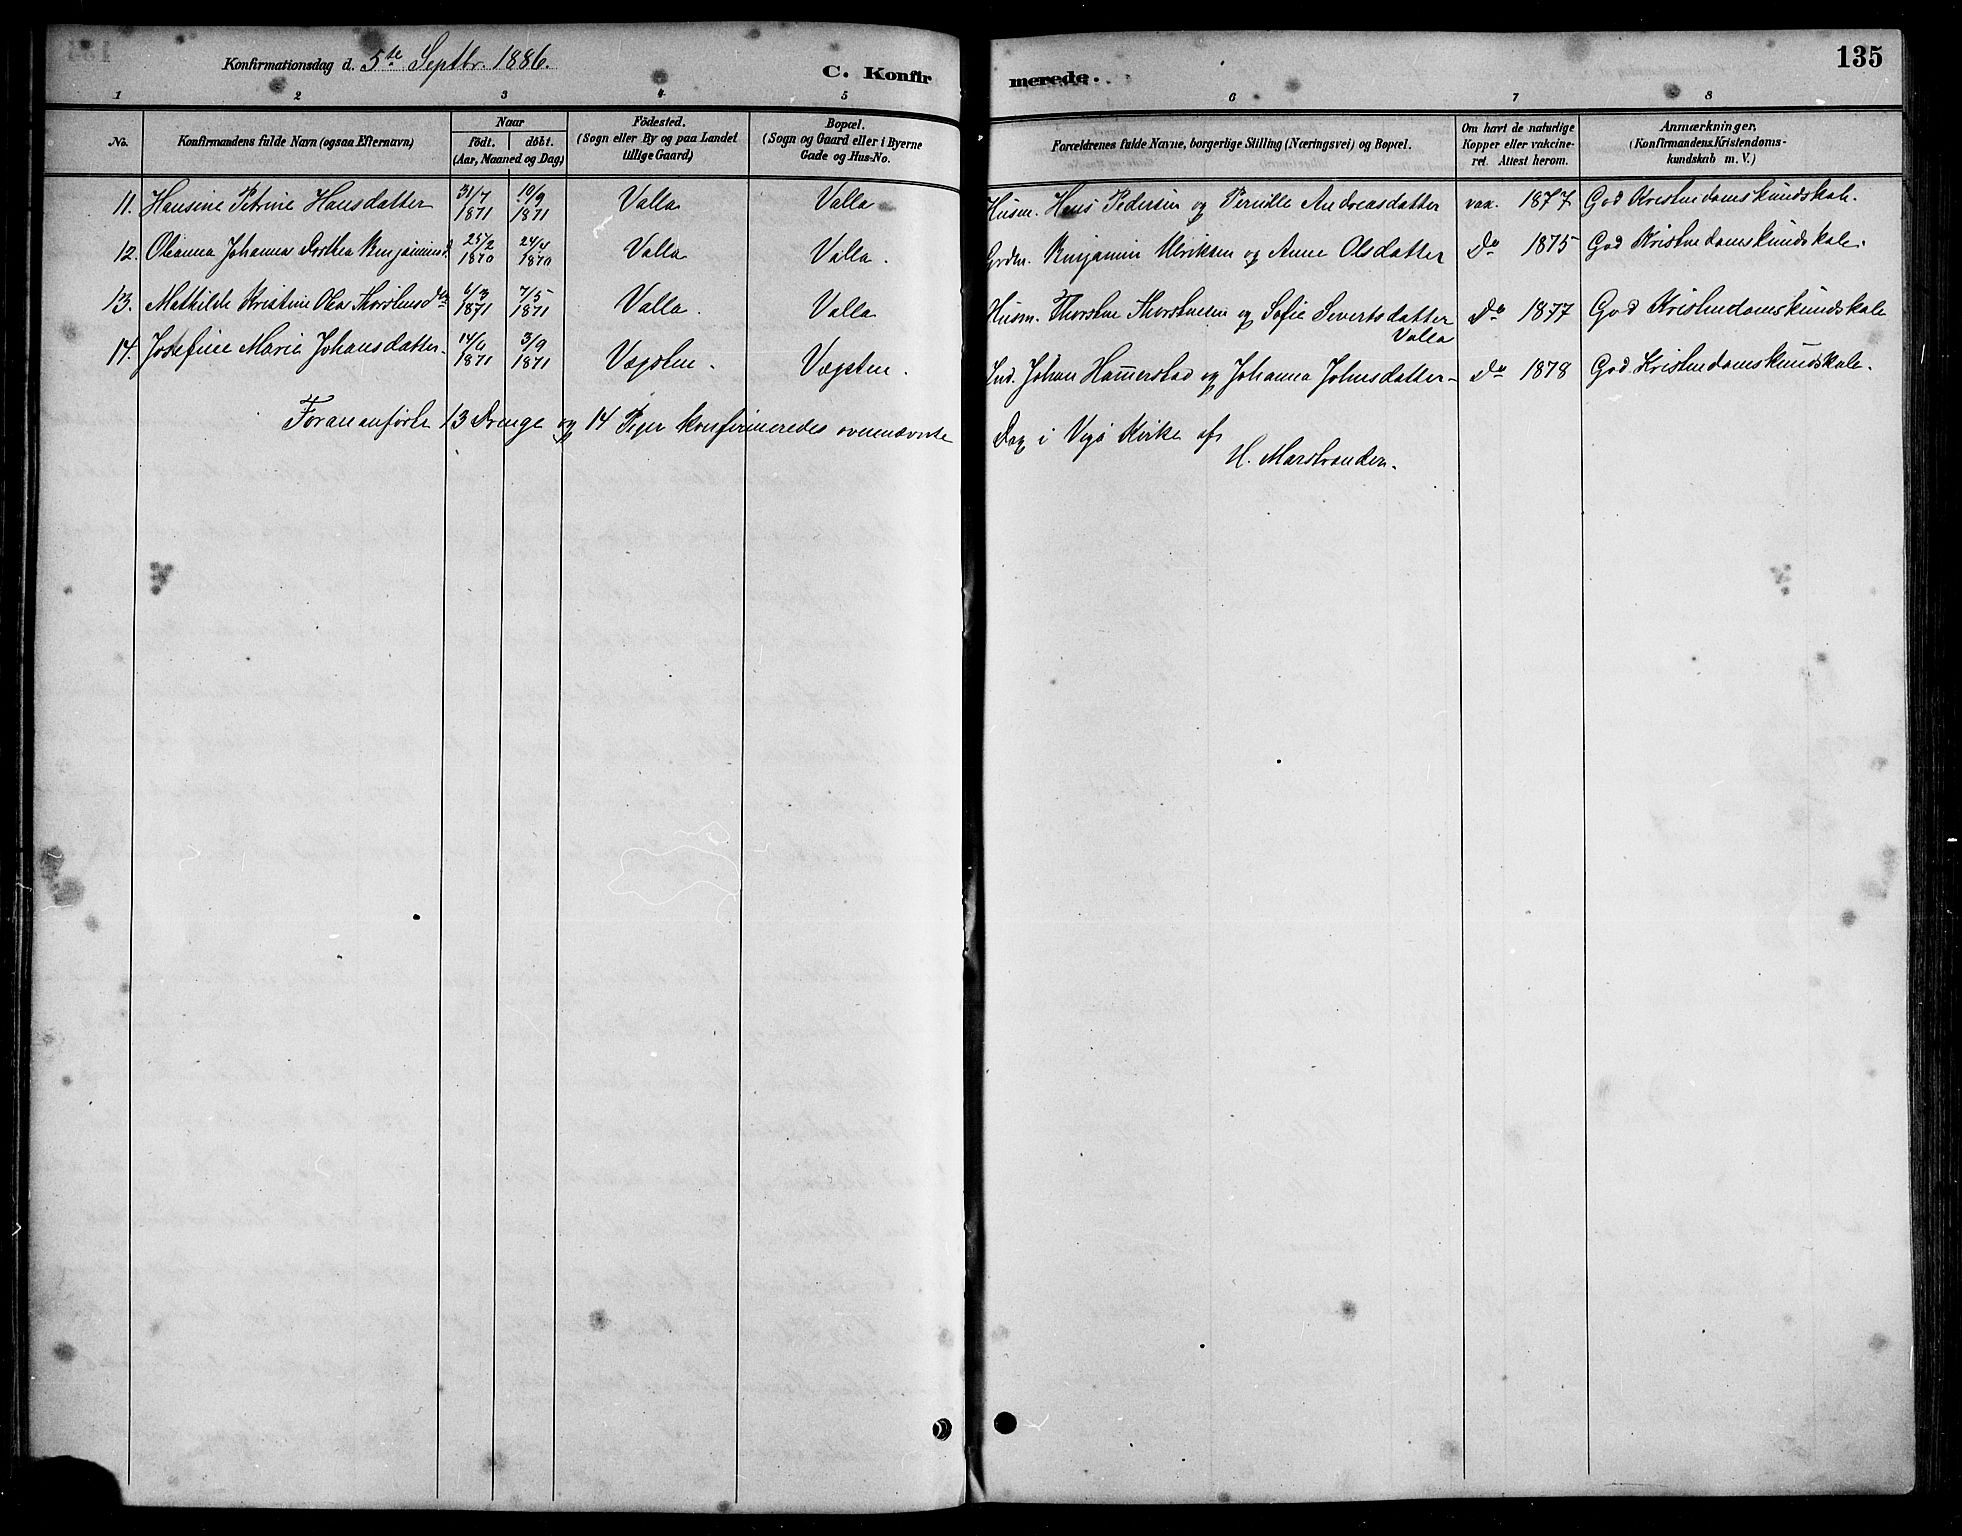 Konfirmationsdag d. 5te Septbr. 1886.
C. Konfirmerede.
135
1 2 3 4 5 6 7 8
No.
Konfirmandens fulde Navn (ogsaa Efternavn)
Naar
födt. döbt.
(Aar, Maaned og Dag)
Födested.
(Sogn eller By og paa Landet
tillige Gaard)
Bopæl.
(Sogn og Gaard eller i Byerne
Gade og Hus-No.
Forældrenes fulde Navne, borgerlige Stilling (Næringsvei) og Bopæl.
Om havt de naturlige
Kopper eller vakcine-
ret. Attest herom.
Anmærkninger.
(Konfirmandens Kristendoms-
kundskab m. V.)
11. Hansine Petrine Hansdatter 31/7 1871 10/9 1871 Valla Valla Husm. Hans Pedersen og Pernille Andreasdatter vax. 1877 God Kristendomskundskab.
12. Oleanna Johanna Dorthea Benjamind 25/2 1870 24/4 1870 Valla Valla. Grdm. Benjamin Ulriksen og Anne Olsdatter do 1875 God Kristendomskundskab.
13. Mathilde Kristine Olea Thorstensdtr 6/3 1871 7/5 1871 Valla. Valla Husm. Thorsten Thorstensen og Sofie Sivertsdatter Valla do 1877 God Kristendomskundskab
14. Josefine Marie Johansdatter. 1871 3/9 1871 Vægsten. Vægsten. Ind. Johan Hammerstad og Johanna Johnsdatter do 1878 God Kristendomskundskab.
Forananförte 13 Drenge og 14 Piger konfirmeredes ovennævnte Dag i Vegö Kirke af
H. Marstrander.